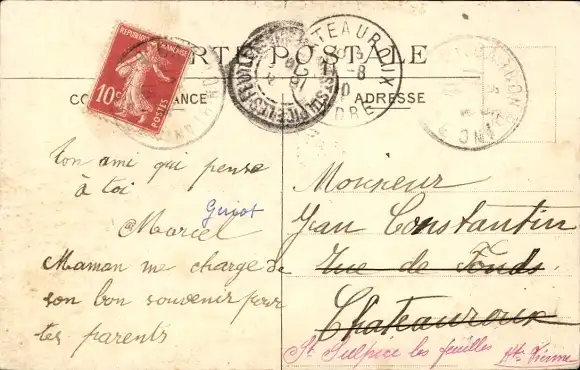 CARTE POSTALE
REPUBLIQUE FRANÇAISE
10c
POSTES
CHATEAUROUX
INDRE
ADRESSE
Ton ami qui pense
à toi
Guiot
Marcel
Maman me charge de
son bon souvenir pour
tes parents
Monsieur
Jean Constantin
Rue de Fonds
Chateauroux
St Sulpice les feuilles Hte Vienne